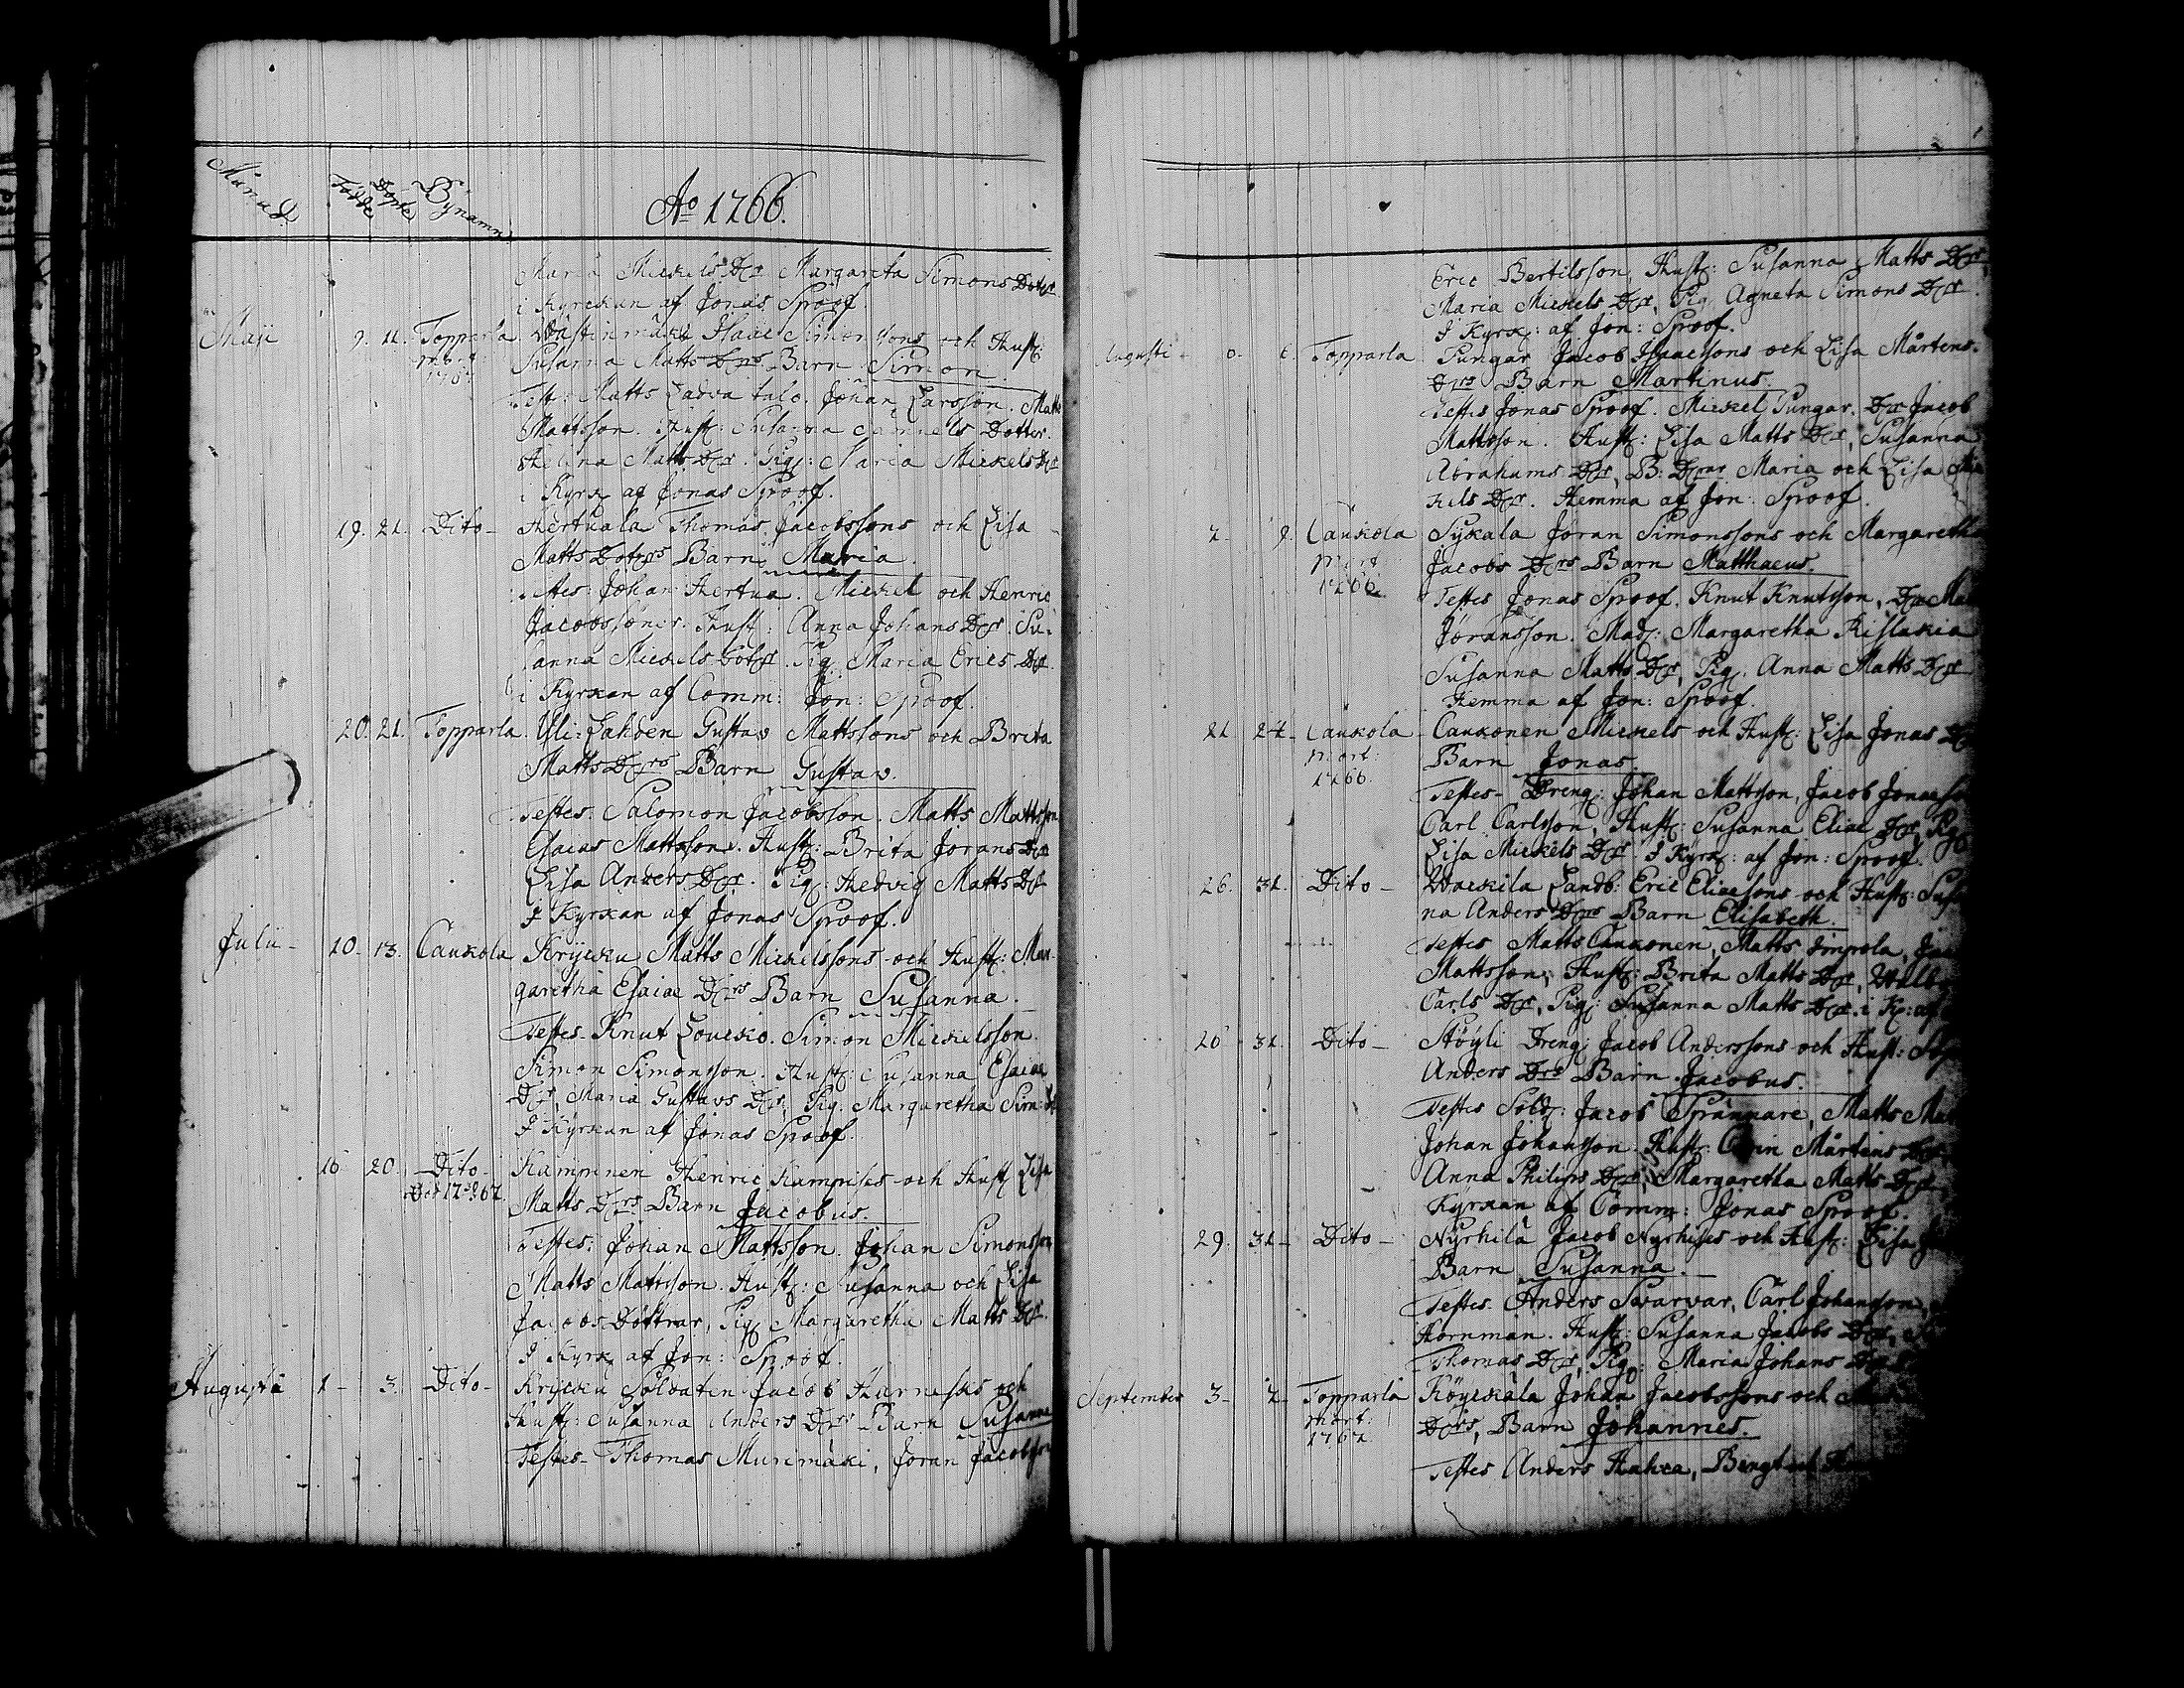 Månad. Födde Döpte Bÿnamn
Ao 1766.
Maria Mickels Dr Margareta Simons Dotter
i Kyrckan af Jonas Sproof.
Maji 9. 11. Topparla Isaac Simonssons och Hust:
mort: Susanna Matts Drs Barn Simon.
Test: Matts Ladvatalo. Johan Larsson. Matts
Mattsson. Hust: Susanna Samuels Dotter.
Helena Matts Dr. Pig: Maria Mickels Dr
i Kyrk af Jonas Sproof.
19. 21. Dito - Hertuala Thomas Jacobssons och Lisa
Matts Dotters Barn Maria.
Testes: Johan Hertua. Mickel och Henric
Jacobssöner. Hust: Anna Johans Dr. Su-
sanna Mickels Dotr. Pig Maria Erics Dr.
i Kyrkan af Comm: Jon: Sproof.
20. 21. Topparla. Uli-Lahden Gustav Mattssons och Brita
Matts Drs Barn Gustav.
Testes. Salomon Jacobsson. Matts Mattsson
Esaias Mattsson. Hust: Brita Jörans Dr
Lisa Anders Dr. Pig: Hedvig Matts Dr
I Kyrkan af Jonas Sproof.
Julii - 10. 13. Caukola Krÿcku Matts Mickelssons och Hust: Mar-
garetha Esaiae Drs Barn Susanna.
Testes- Knut Loucko. Simon Mickelsson.
Simon Simonsson. Hust: Susanna Esaiae
Dr, Maria Gustavs Dr, Pig. Margaretha Sim: Dr
I Kÿrkan af Jonas Sproof.
16 20. Dito - Kampinen Henric Kampises och Hust Lisa
Matts Drs Barn Jacobus.
Testes: Johan Mattsson. Johan Simonsson
Matts Mattsson. Hust: Susanna och Lisa
Jacobs Döttrar, Pig Margaretha Matts Dr.
I Kyrk af Jon: Sproof.
Augusti 1 - 3. Dito - Krÿcku Soldaten Jacob Harnesks och
Hust: Susanna Anders Drs Barn Susanna
Testes- Thomas Murimäki, Joran Jacobsson
Eric Bertilsson, Hust: Susanna Matts Dr,
Maria Mickels Dr, Pig Agneta Simons Dr
I Kyrk: af Jon: Sproof.
Augusti - 6. Topparla Pungar Jacob Isaacssons och Lisa Mårtens-
Drs Barn Martinus.
Testes Jonas Sproof. Mickel Pungar. Dr Jacob
Mattsson. Hust: Lisa Matts Dr, Susanna
Abrahams Dr, B: Drar Maria och Lisa Mic
kels Dr. Hemma af Jon: Sproof.
7. 9. Caukola Sÿkala Jöran Simonssons och Margaretha
Mort 1766. Jacobs Drs Barn Matthaeus.
Testes Jonas Sproof. Knut Knutsson,
Jöransson. Mad: Margaretha
Susanna Matts Dr, Pig. Anna Matts Dr
Hemma af Jon: Sproof.
21 24 - Caukola - Caukonen Mickels och Hust: Lisa Jonas
mort: 1766. Barn Jonas.
Testes- Dreng: Johan Mattsson, Jacob
Carl Carlsson, Hust: Susanna Eliae Dr,
Lisa Mickels Dr. I Kÿrk: af Jon: Sproof.
26. 31. Dito - Wäckilä Landb: Eric Eliaesons och Hust: Susan
na Anders Drs Barn Elisabeth.
Testes Matts Caukonen, Matts Impola,
Mattsson, Hust: Brita Matts Dr,
Carls Dr, Pig: Susanna Matts Dr. i K: af
26 31. Dito - Stöyli Dreng: Jacob Anderssons och Hust:
Anders Drs Barn Jacobus.
Testes Sold: Jacob Sprännare, Matts
Johan Johansson. Hust: Carin Mårtens
Anna Philips Dr, Margaretha Matts Dr
Kyrkan af Comm: Jonas Sproof.
29. 31 - Dito - Nyrhilä Jacob Nyrhises och Hust: Lisa
Barn Susanna.
Testes. Anders Swarvar, Carl Johansson,
Hornman. Hust: Susanna Jacobs Dr,
Thomas Dr, Pig: Maria Johans Dr
September 3 - 7 - Topparla Köyckälä Johan Jacobssons och
mort: 1767. Drs, Barn Johannes.
Testes Anders Hahca, Bengt